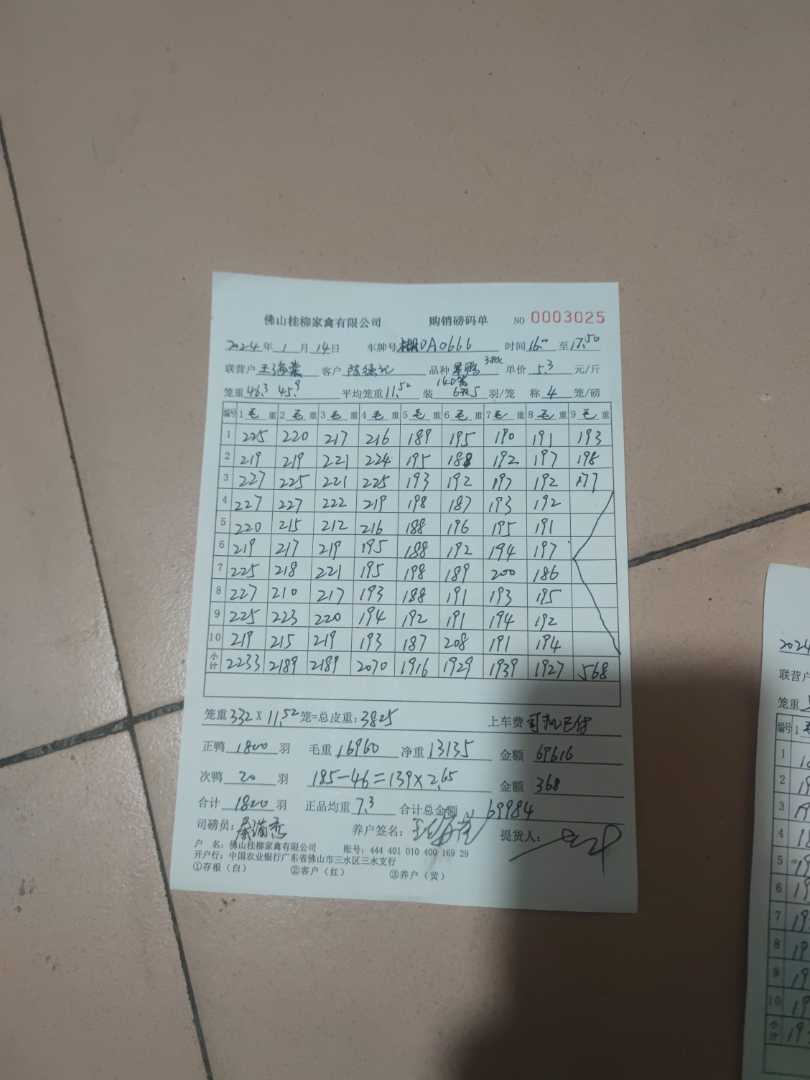 佛山桂柳家禽有限公司 购销磅码单 NO 0003025
2024年 1 月 14日 车牌号 0A0666 时间 16:00 至 17:50
联营户 客户 品种 单价 5.3 元/斤
笼重 46.3 45.9 平均笼重 11.52 装 羽/笼 称 4 笼/磅
编号 1 毛 重 2 毛 重 3 毛 重 4 毛 重 5 毛 重 6 毛 重 7 毛 重 8 毛 重 9 毛 重
1 225 220 217 216 189 195 190 191 193
2 219 219 221 224 195 188 192 197 198
3 227 225 221 225 193 192 197 192 177
4 227 227 222 219 198 187 193 192
5 220 215 212 216 188 196 195 191
6 219 217 219 195 188 192 194 197
7 225 218 221 195 198 189 200 186
8 227 210 217 193 188 191 193 195
9 225 223 220 194 192 191 194 192
10 219 215 219 193 187 208 191 194
小计 2233 2189 2189 2070 1916 1929 1939 1927 568
笼重 332 X 11.52 笼=总皮重: 3825 上车费 司机已付
正鸭 1800 羽 毛重 16960 净重 13135 金额 69616
次鸭 20 羽 185-46=139×2.65 金额 368
合计 1820 羽 正品均重 7.3 合计总金额 69984
司磅员: 养户签名: 提货人:
户 名: 佛山桂柳家禽有限公司 账号: 444 401 010 400 169 29
开户行: 中国农业银行广东省佛山市三水区三水支行
①存根(白) ②客户(红) ③养户(黄)
2024
联营户
笼重
编号 1
1
2
3
4
5
6
7
8
9
10
小计